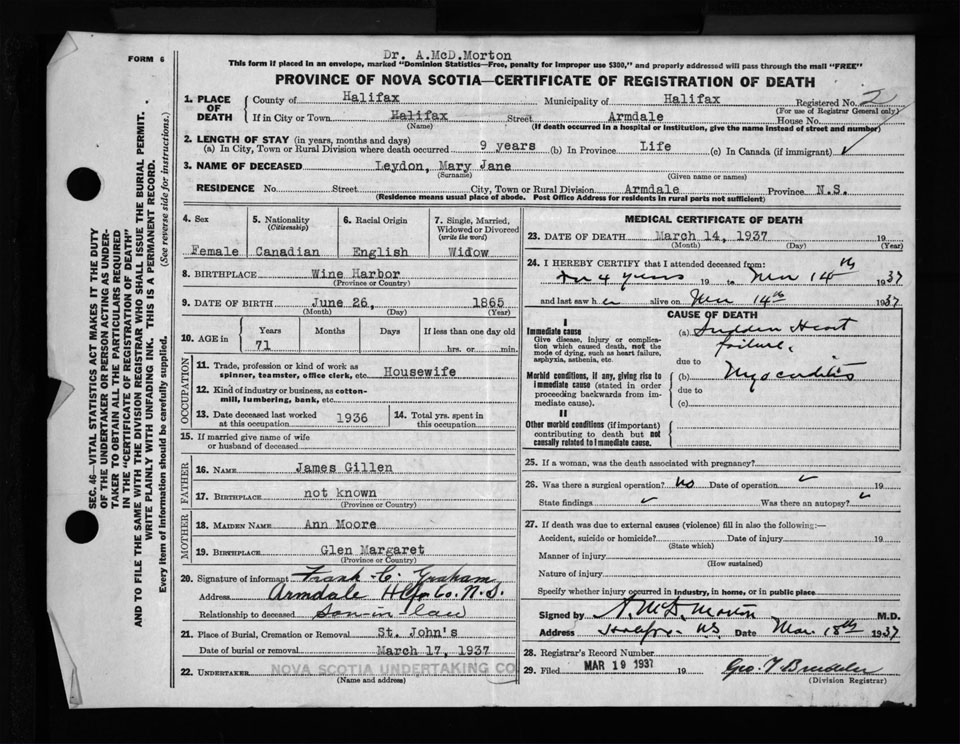 FORM 6
Dr. A.McD.Morton
This form if placed in an envelope, marked "Dominion Statistics—Free, penalty for improper use $300," and properly addressed will pass through the mail "FREE"
PROVINCE OF NOVA SCOTIA—CERTIFICATE OF REGISTRATION OF DEATH
1. PLACE OF DEATH
County of Halifax Municipality of Halifax Registered No. 2
(For use of Registrar General only)
If in City or Town Halifax Street Armdale House No.
(Name) (If death occurred in a hospital or institution, give the name instead of street and number)
2. LENGTH OF STAY (in years, months and days)
(a) In City, Town or Rural Division where death occurred 9 years (b) In Province Life (c) In Canada (if immigrant) ✓
3. NAME OF DECEASED Leydon, Mary Jane
(Surname) (Given name or names)
RESIDENCE No Street City, Town or Rural Division Armdale Province N.S.
(Residence means usual place of abode. Post Office Address for residents in rural parts not sufficient)
4. Sex Female
5. Nationality (Citizenship) Canadian
6. Racial Origin English
7. Single, Married, Widowed or Divorced (write the word) Widow
8. BIRTHPLACE Wine Harbor
(Province or Country)
9. DATE OF BIRTH June 26, 1865
(Month) (Day) (Year)
10. AGE in Years Months Days If less than one day old
71 hrs. or min.
OCCUPATION
11. Trade, profession or kind of work as spinner, teamster, office clerk, etc. Housewife
12. Kind of industry or business, as cotton-mill, lumbering, bank, etc.
13. Date deceased last worked at this occupation 1936
14. Total yrs. spent in this occupation
15. If married give name of wife or husband of deceased
FATHER
16. NAME James Gillen
17. BIRTHPLACE not known
(Province or Country)
MOTHER
18. MAIDEN NAME Ann Moore
19. BIRTHPLACE Glen Margaret
(Province or Country)
20. Signature of informant Frank C. Graham
Address Armdale Hfx Co. N.S.
Relationship to deceased Son-in law
21. Place of Burial, Cremation or Removal St. John's
Date of burial or removal March 17, 1937
22. UNDERTAKER NOVA SCOTIA UNDERTAKING CO
(Name and address)
MEDICAL CERTIFICATE OF DEATH
23. DATE OF DEATH March 14, 1937 19
(Month) (Day) (Year)
24. I HEREBY CERTIFY that I attended deceased from:
for 4 years 19 to Mar 14th 1937
and last saw h er alive on Mar 14th 1937
CAUSE OF DEATH
I
Immediate cause
Give disease, injury or complication which caused death, not the mode of dying, such as heart failure, asphyxia, asthenia, etc.
(a) Sudden Heart
failure.
due to
Morbid conditions, if any, giving rise to immediate cause (stated in order proceeding backwards from immediate cause).
(b) Myocarditis
due to
(c)
II
Other morbid conditions (if important) contributing to death but not causally related to immediate cause.
25. If a woman, was the death associated with pregnancy?
26. Was there a surgical operation? no Date of operation ✓
State findings ✓ Was there an autopsy? ✓
27. If death was due to external causes (violence) fill in also the following:—
Accident, suicide or homicide? Date of injury 19
(State which)
Manner of injury
(How sustained)
Nature of injury
Specify whether injury occurred in industry, in home, or in public place
Signed by A. McD. Morton M.D.
Address Halifax N.S. Date Mar. 18th 1937
28. Registrar's Record Number
29. Filed MAR 19 1937 19
(Division Registrar)
SEC. 46—VITAL STATISTICS ACT MAKES IT THE DUTY
OF THE UNDERTAKER OR PERSON ACTING AS UNDERTAKER TO OBTAIN ALL THE PARTICULARS REQUIRED
IN THE "CERTIFICATE OF REGISTRATION OF DEATH"
AND TO FILE THE SAME WITH THE DIVISION REGISTRAR WHO SHALL ISSUE THE BURIAL PERMIT.
WRITE PLAINLY WITH UNFADING INK. THIS IS A PERMANENT RECORD.
Every item of information should be carefully supplied. (See reverse side for instructions.)